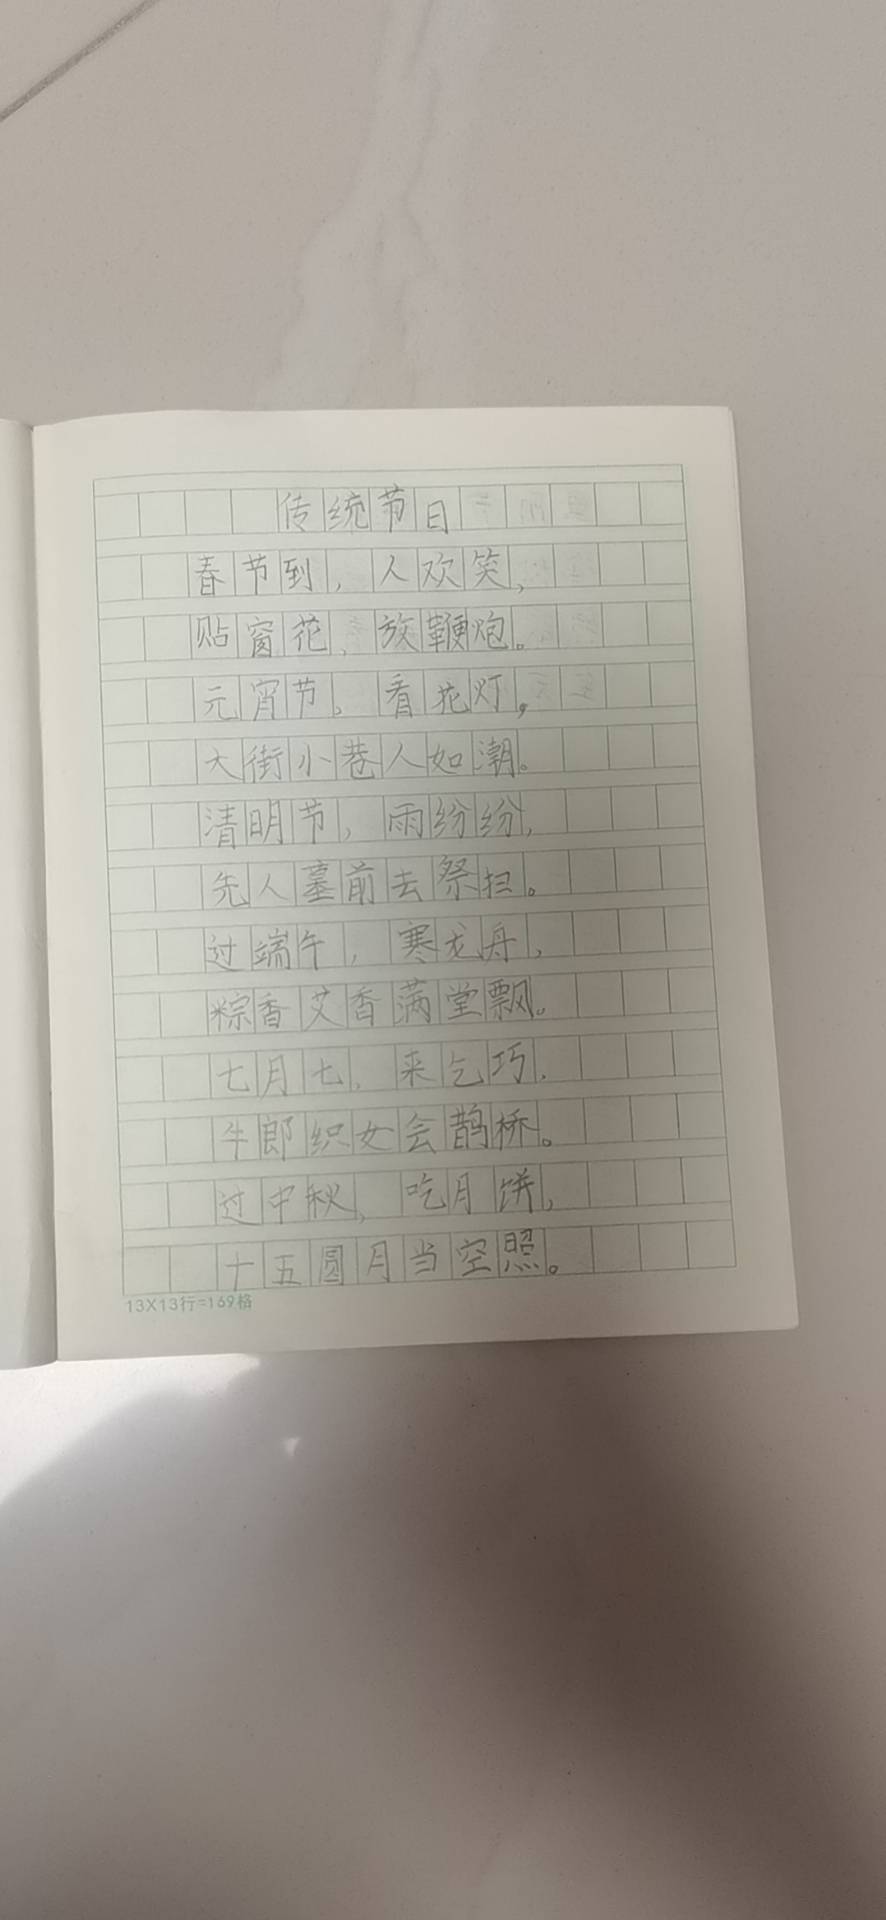 传统节日
春节到，人欢笑，
贴窗花，放鞭炮。
元宵节，看花灯，
大街小巷人如潮。
清明节，雨纷纷，
先人墓前去祭扫。
过端午，寒龙舟，
粽香艾香满堂飘。
七月七，来乞巧，
牛郎织女会鹊桥。
过中秋，吃月饼，
十五圆月当空照。
13X13行=169格